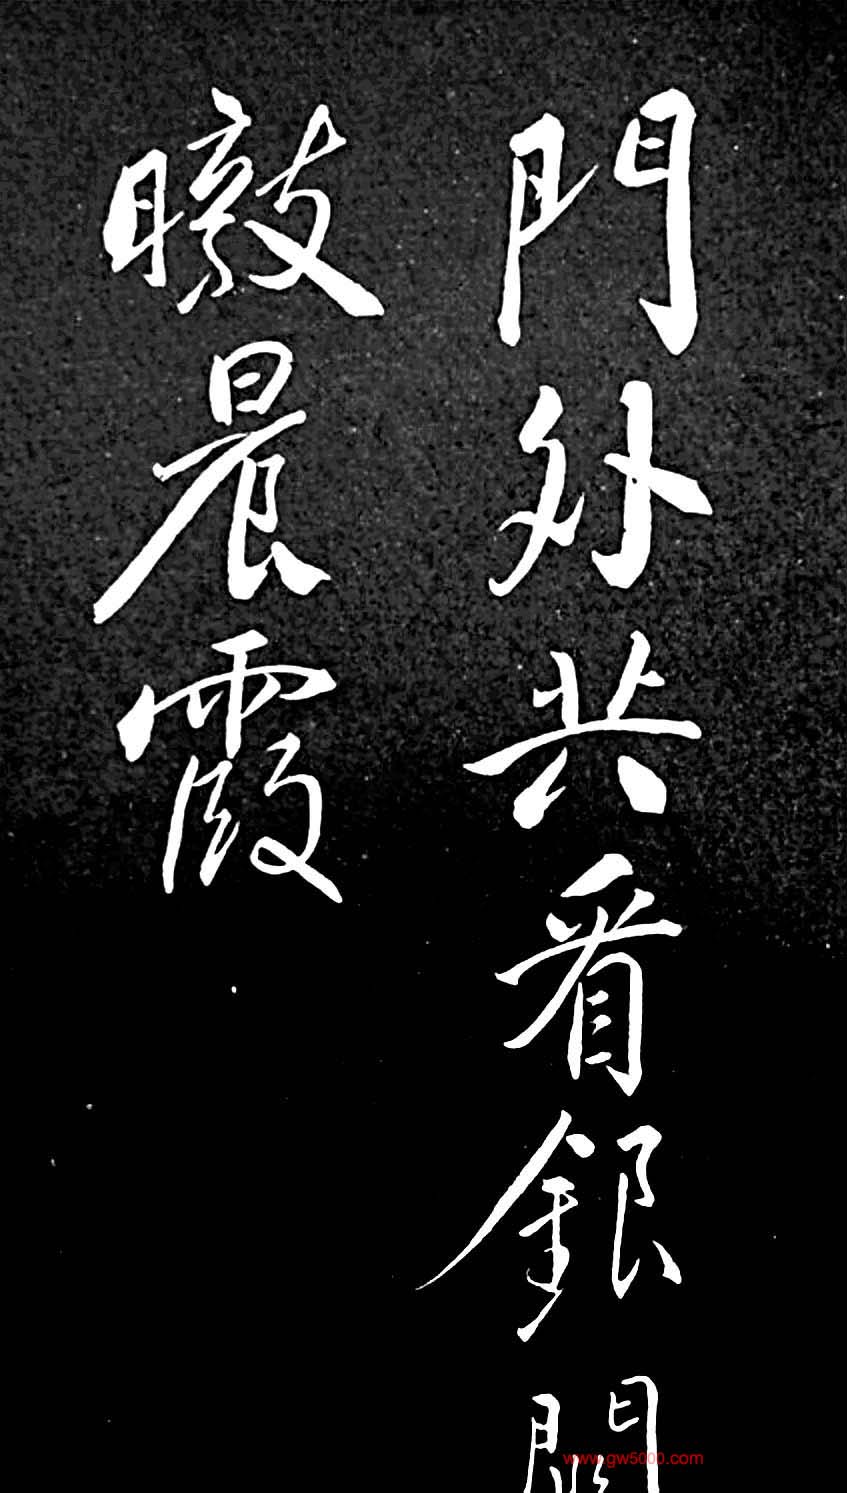 門外共看銀閣
暾晨霞
www.gw5000.com